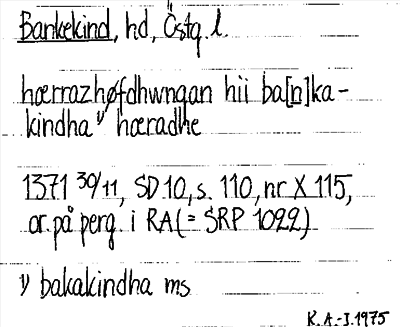 Bankekind, hd, Östg. l.
hærrazhøfdhwngan hii ba[n]ka-
kindha ¹⁾ hæradhe
1371 30/11, SD 10, s. 110, nr X 115,
or. på perg. i RA (= SRP 1022)
¹⁾ bakakindha ms
K.A.-I. 1975